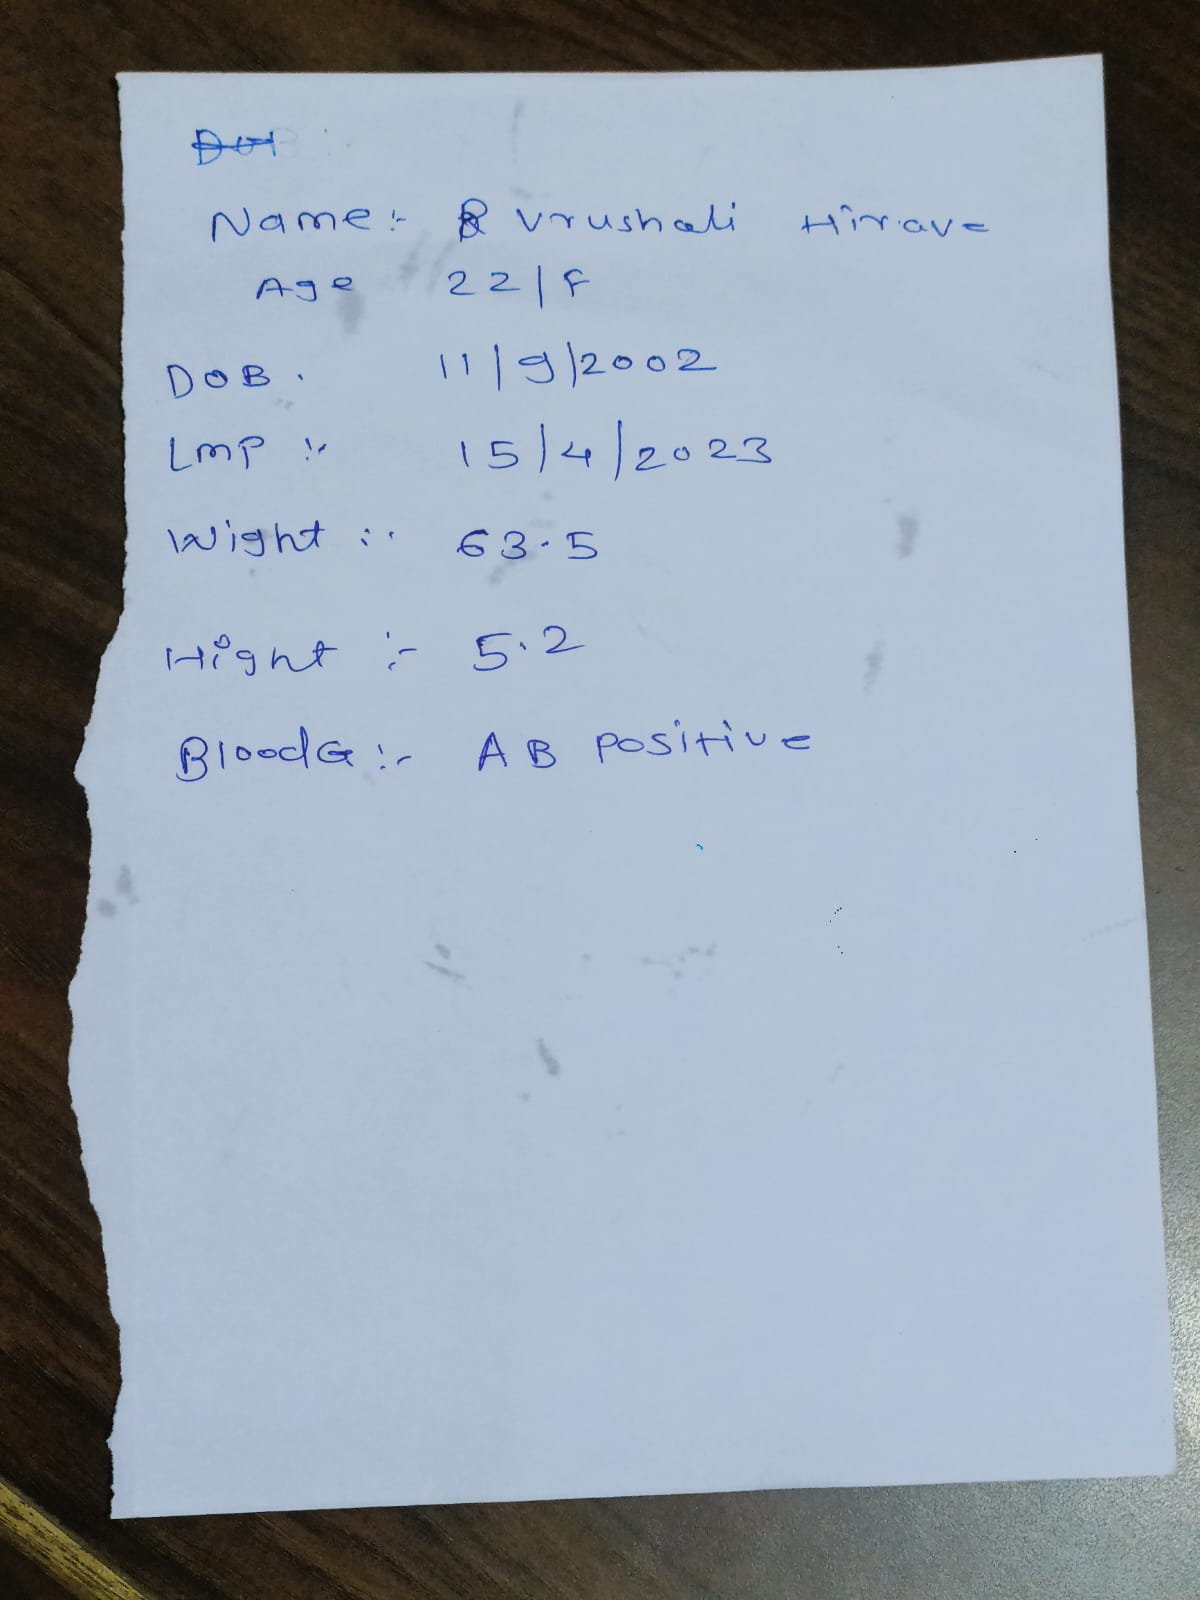 Name:- Vrushali Hirave
Age 22/F
DOB. 11/9/2002
LMP :- 15/4/2023
Wight :- 63.5
Hight :- 5.2
BloodG :- AB positive